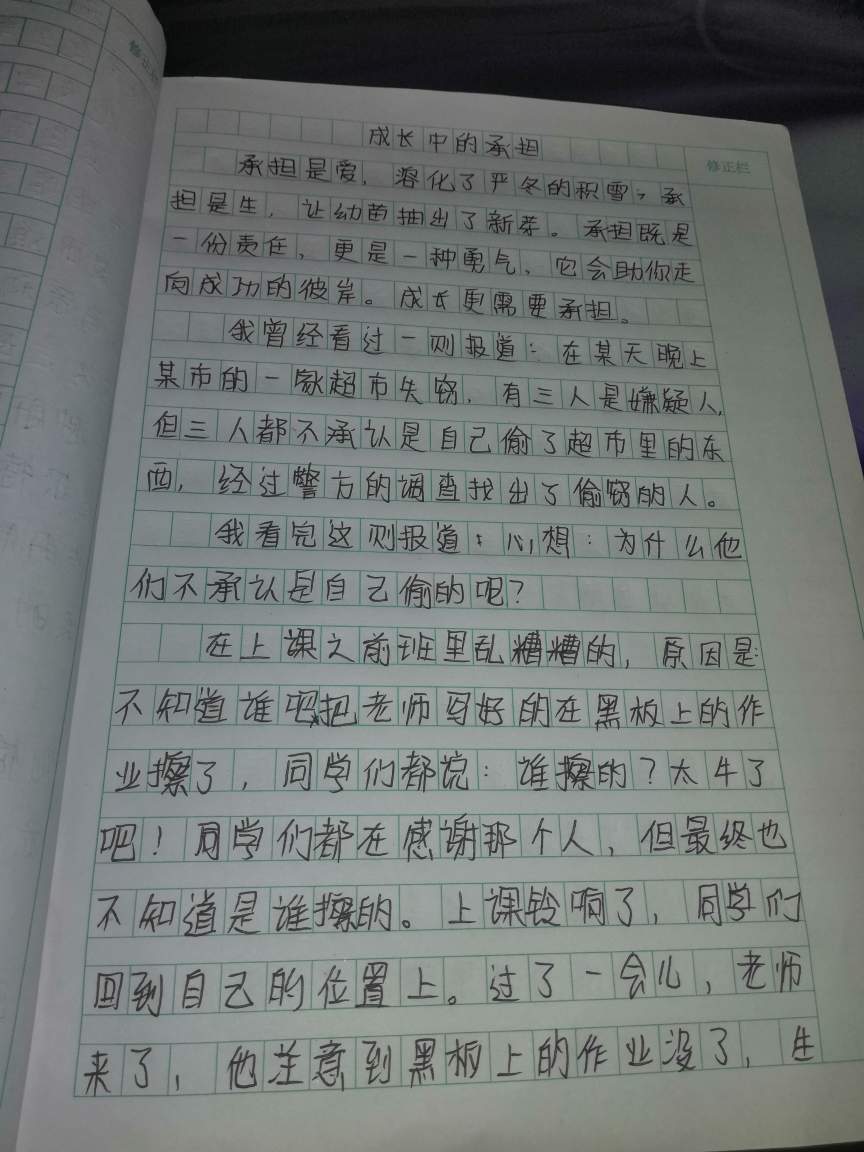 修正栏
修正栏
成长中的承担
承担是爱，溶化了严冬的积雪，承
担是生，让幼苗抽出了新芽。承担既是
一份责任，更是一种勇气，它会助你走
向成功的彼岸。成长更需要承担。
我曾经看过一则报道：在某天晚上
某市的一家超市失窃，有三人是嫌疑人，
但三人都不承认是自己偷了超市里的东
西，经过警方的调查找出了偷窃的人。
我看完这则报道，心想：为什么他
们不承认是自己偷的呢？
在上课之前班里乱糟糟的，原因是：
不知道谁吧把老师写好的在黑板上的作
业擦了，同学们都说：谁擦的？太牛了
吧！同学们都在感谢那个人，但最终也
不知道是谁擦的。上课铃响了，同学们
回到自己的位置上。过了一会儿，老师
来了，他注意到黑板上的作业没了，生